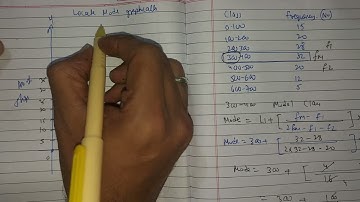 Locate Mode graphically
y
Class Frequency (No)
0-100 15
100-200 20
200-300 28 f1
300-400 32 fm
400-500 20 f2
500-600 12
600-700 5
300-400 Modal Class
Mode = L1 + [ fm - f1
2fm - f1 - f2 ]
Mode = 300 + [ 32-28
2×32-28-20 ]
Mode = 300 + [ 4
16
= 300 +